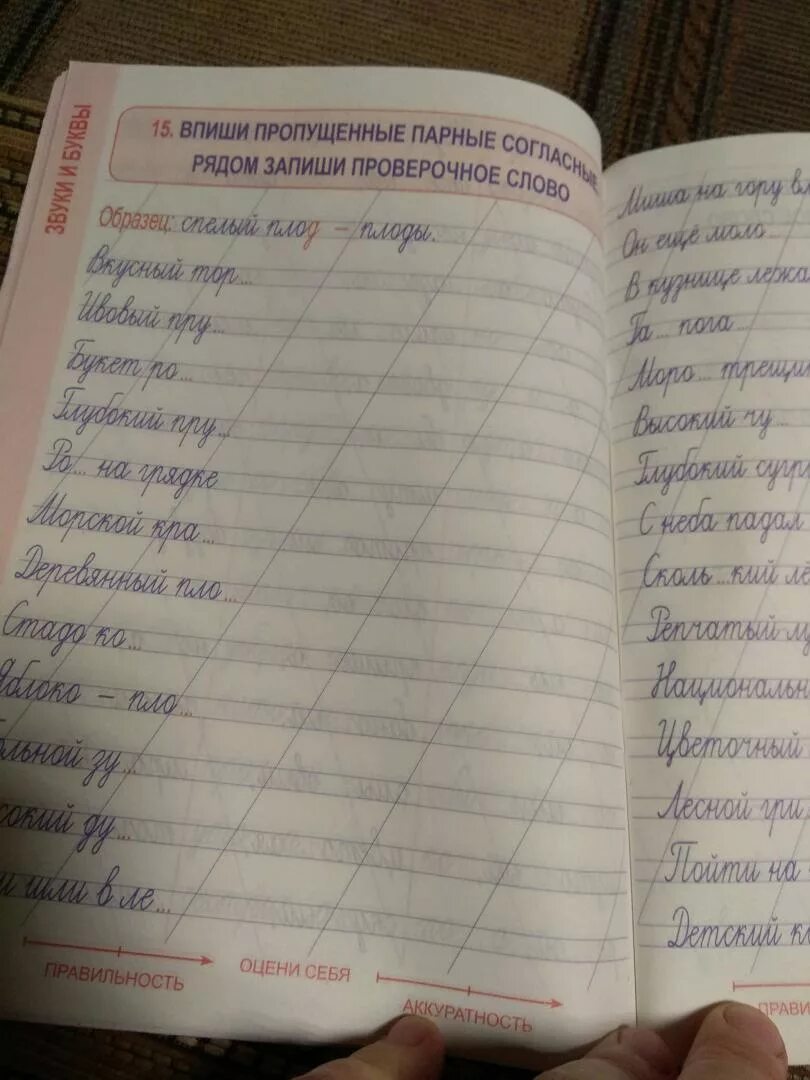 ЗВУКИ И БУКВЫ
15. ВПИШИ ПРОПУЩЕННЫЕ ПАРНЫЕ СОГЛАСНЫЕ
РЯДОМ ЗАПИШИ ПРОВЕРОЧНОЕ СЛОВО
Образец: спелый плод – плоды.
Вкусный тор...
Ивовый пру...
Букет ро...
Глубокий пру...
Ро... на грядке
Морской кра...
Деревянный пло...
Стадо ко...
Яблоко – пло...
льной зу...
окий ду...
и шли в ле...
ПРАВИЛЬНОСТЬ
ОЦЕНИ СЕБЯ
АККУРАТНОСТЬ
Миша на гору вл
Он ещё моло...
В кузнице лежа
Га... пога...
Моро... трещи
Высокий чу...
Глубокий сугр
С неба падал
Сколь...кий лё
Репчатый лу
Национальн
Цветочный
Лесной гри
Пойти на
Детский к
ПРАВИ